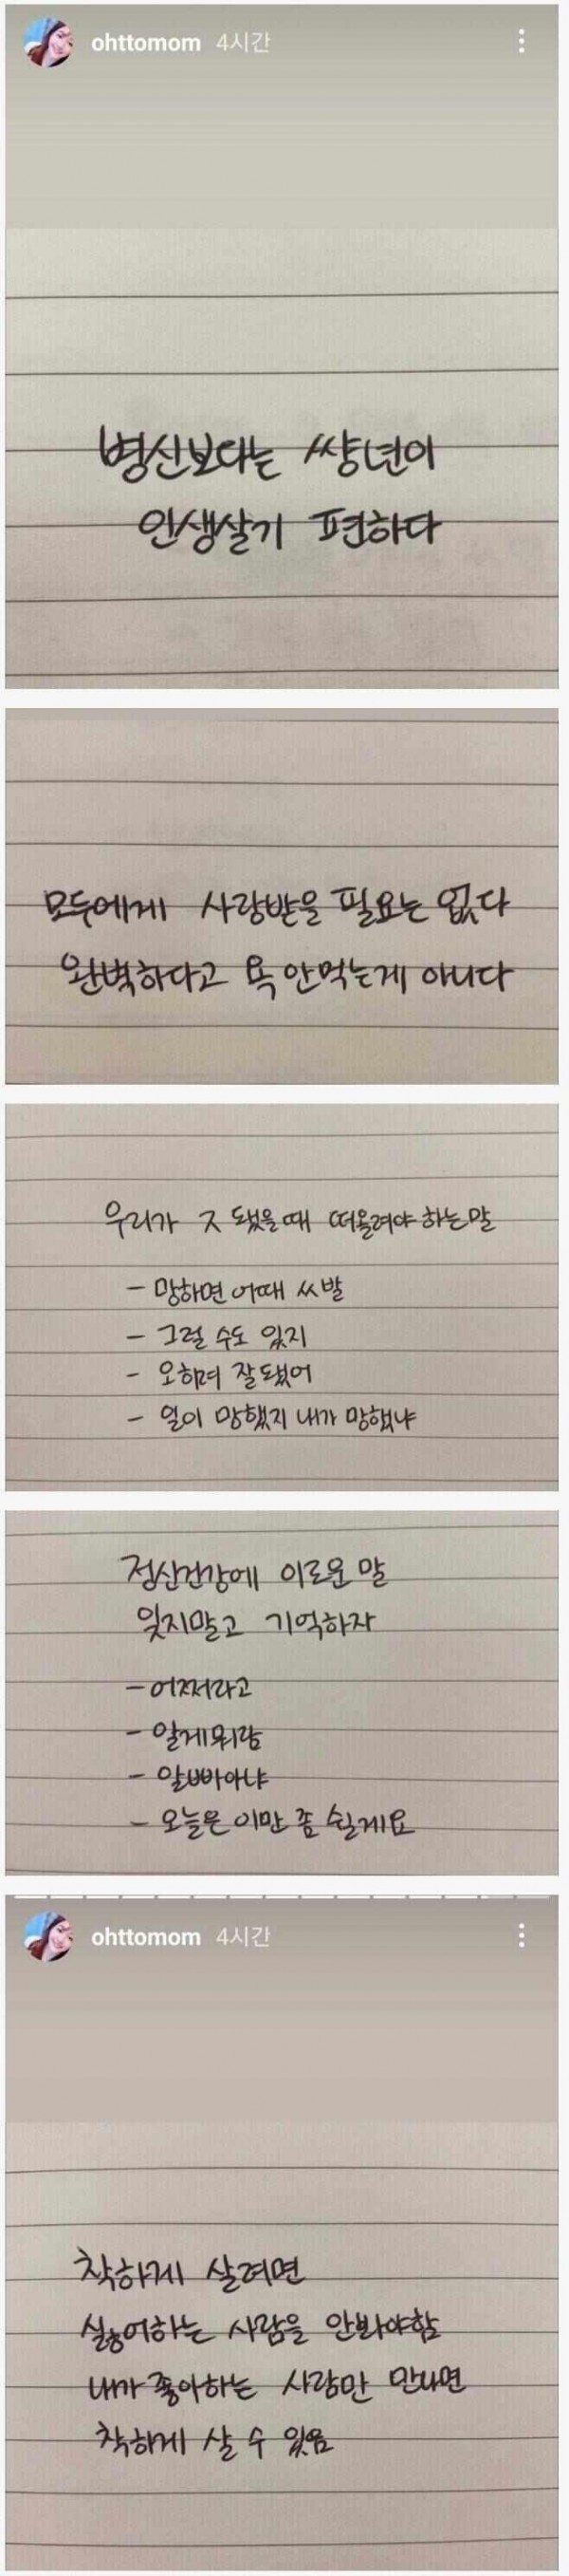 ohttomom 4시간
병신보다는 쌍년이
인생살기 편하다
모두에게 사랑받을 필요는 없다
완벽하다고 욕 안먹는게 아니다
우리가 ㅈ 됐을때 떠올려야 하는말
- 망하면 어때 씨발
- 그럴 수도 있지
- 오히려 잘됐어
- 일이 망했지 내가 망했냐
정신건강에 이로운 말
잊지말고 기억하자
- 어쩌라고
- 알게뭐람
- 알빠아냐
- 오늘은 이만 좀 쉴게요
ohttomom 4시간
착하게 살려면
싫어하는 사람을 안봐야함
내가 좋아하는 사람만 만나면
착하게 살 수 있음